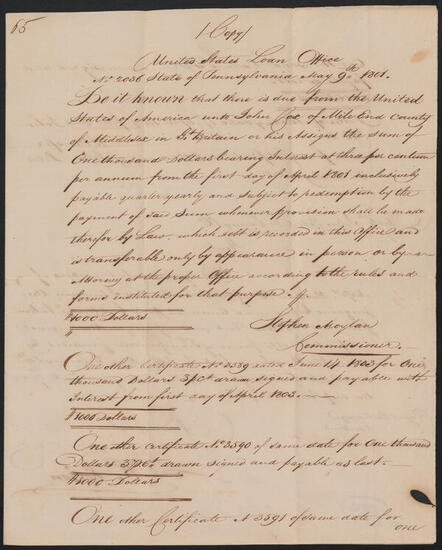 65
(Copy)
United States Loan Office
No. 2036 State of Pennsylvania May 9th 1801.
Be it known that there is due from the United
States of America unto John Cox of Mile End County
of Middlesex in Gt. Britain or his Assigns the Sum of
One thousand Dollars bearing Interest at three per centum
per annum from the first day of April 1801 inclusively
payable quarter yearly and subject to redemption by the
payment of said Sum whenever provision shall be made
therefor by Law, which debt is recorded in this Office and
is transferable only by appearance in person or by an
Attorney at the proper Office according to the rules and
forms instituted for that purpose
$1000 Dollars
Stephen Moylan
Commissioner.
One other Certificate No. 3589 dated June 14. 1803 for One
thousand Dollars 3 pCt drawn signed and payable with
Interest from first day of April 1803.
$1000 Dollars
One other Certificate No 3590 of same date for One thousand
Dollars 3 pCt drawn signed and payable as last
$1000 Dollars
One other Certificate N 3591 of same date for
one